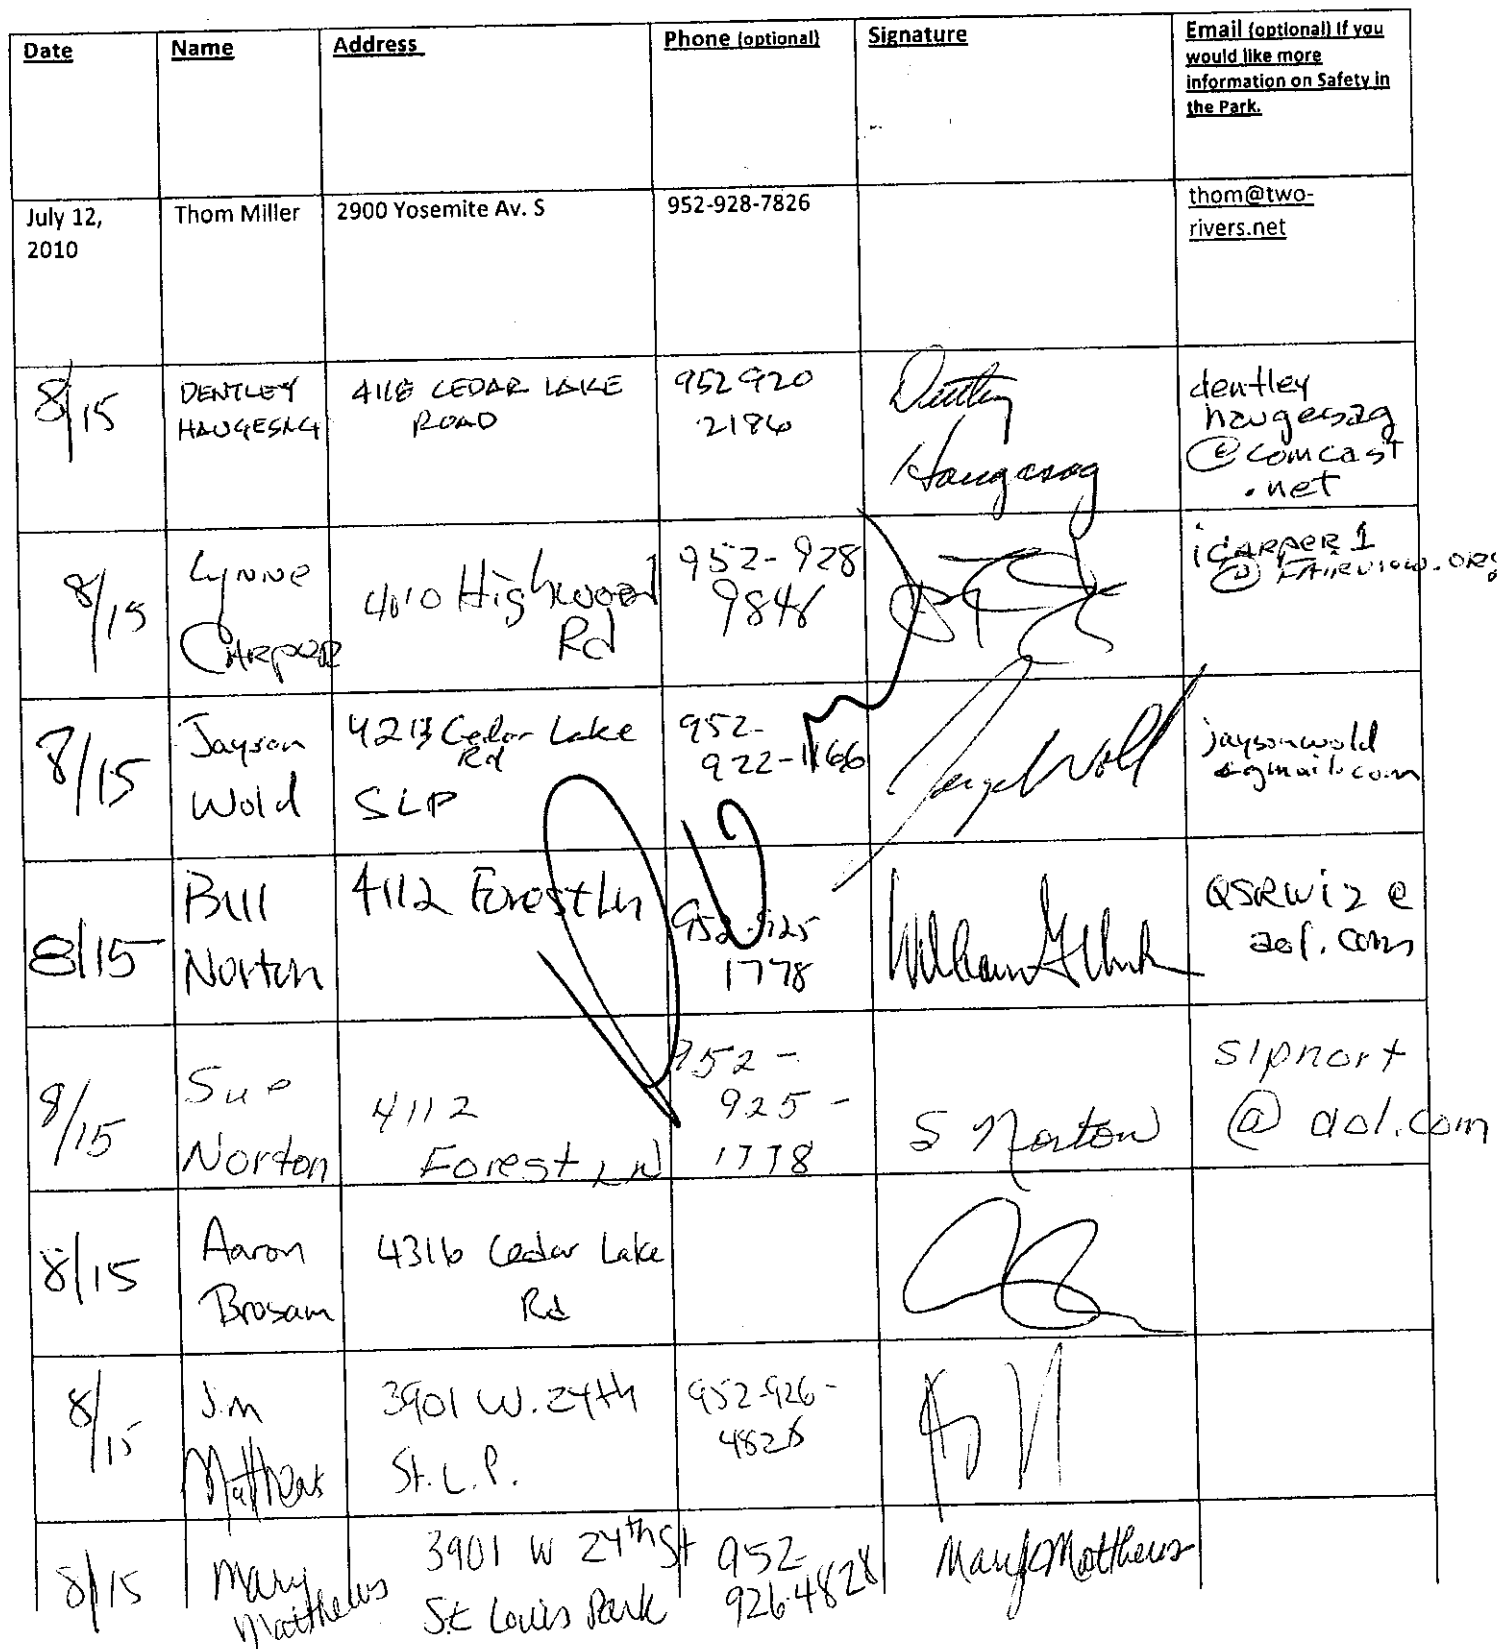 Date
Name
Address
Phone (optional)
Signature
Email (optional) If you
would like more
information on Safety in
the Park.
July 12,
2010
Thom Miller
2900 Yosemite Av. S
952-928-7826
thom@two-
rivers.net
8/15
DENTLEY
HAUGESAG
4118 CEDAR LAKE
ROAD
952 920
2186
Dentley
Haugesag
dentley
haugesag
@comcast
.net
8/15
Lynne
Carper
4010 Highwood
Rd
952-928
9848
@ FAIRVIEW.ORG
8/15
Jayson
Wold
4213 Cedar Lake
Rd
SLP
952-
922-1166
jaysonwold
@gmail.com
8/15
Bill
Norton
4112 Forest Ln
952-925
1778
QSRWiz @
aol.com
8/15
Sue
Norton
4112
Forest LN
952-
925-
1778
S Norton
slpnort
@ aol.com
8/15
Aaron
Brosam
4316 Cedar Lake
Rd
8/15
Jim
Matthews
3901 W. 24th
St. L. P.
952-926-
4828
8/15
Mary
Matthews
3901 W 24th St
St Louis Park
952-
926-4828
Mary Matthews